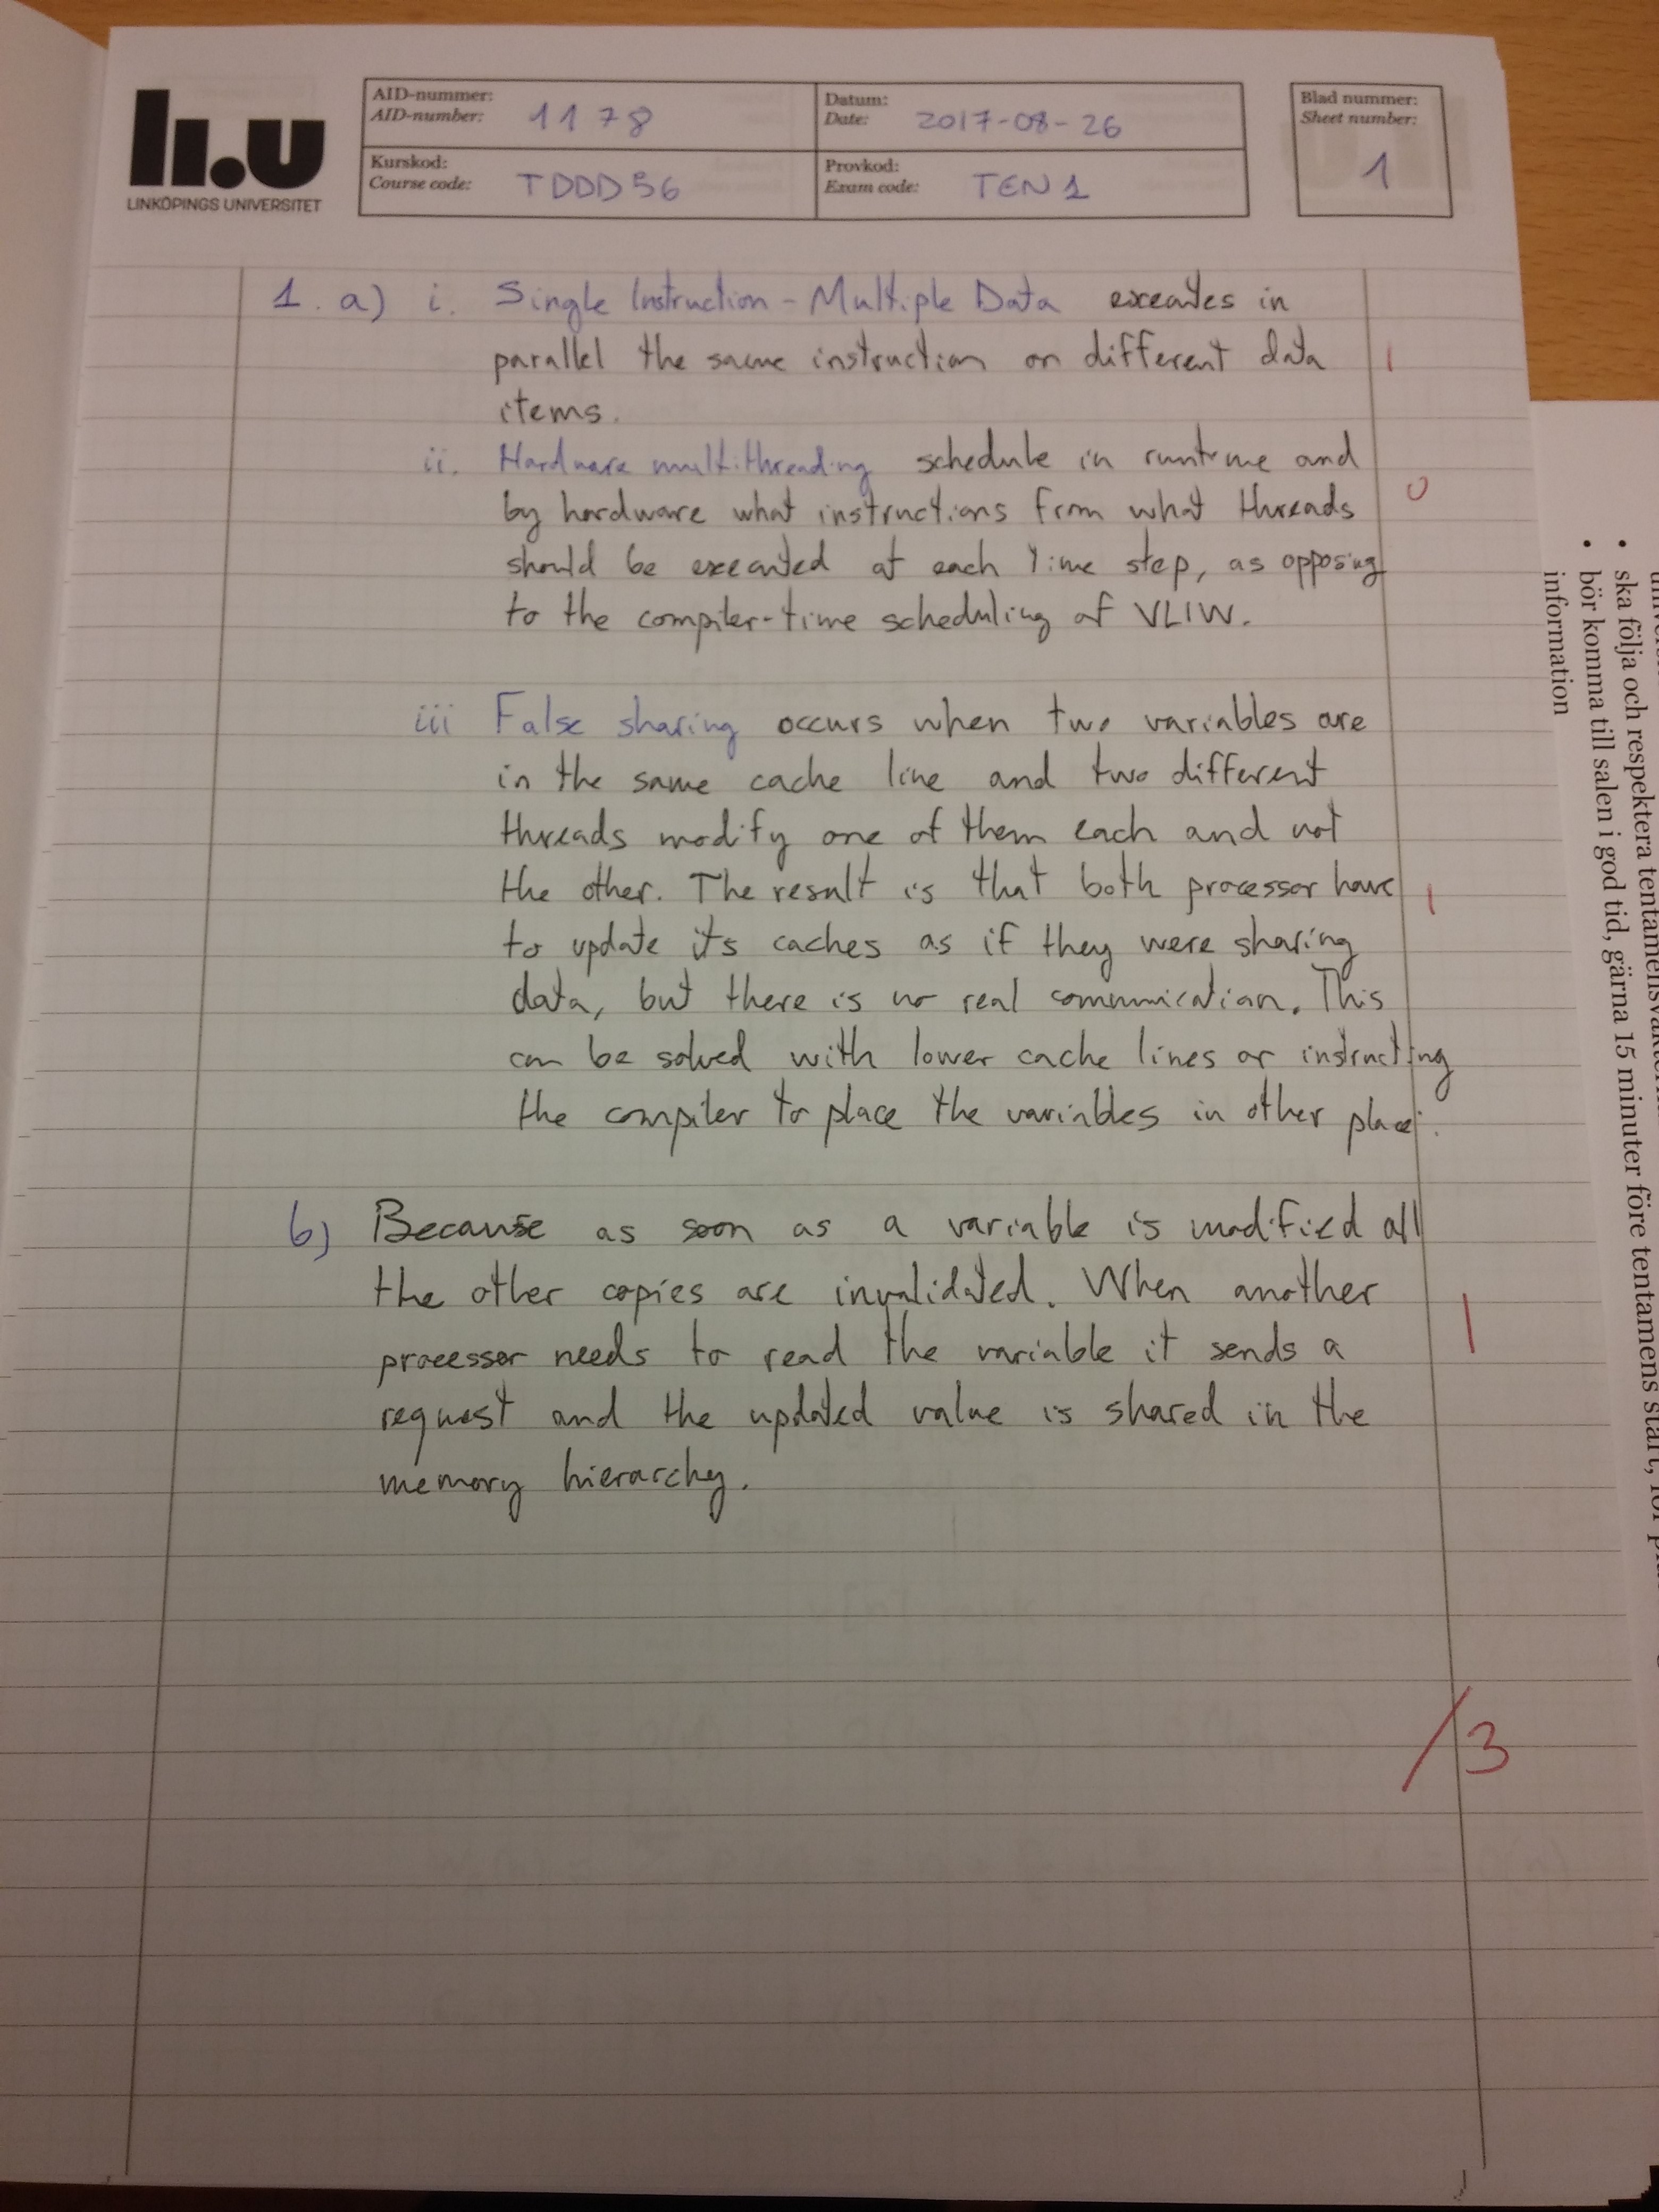 li.u
LINKÖPINGS UNIVERSITET
AID-nummer:
AID-number: 1178
Datum:
Date: 2017-08-26
Kurskod:
Course code: TDDD56
Provkod:
Exam code: TEN1
Blad nummer:
Sheet number:
1
1. a) i. Single Instruction - Multiple Data executes in
parallel the same instruction on different data 1
items.
ii. Hardware multithreading schedule in runtime and
by hardware what instructions from what threads 0
should be executed at each time step, as opposing
to the compiler-time scheduling of VLIW.
iii False sharing occurs when two variables are
in the same cache line and two different
threads modify one of them each and not
the other. The result is that both processor have 1
to update its caches as if they were sharing
data, but there is no real communication. This
can be solved with lower cache lines or instructing
the compiler to place the variables in other place.
b) Because as soon as a variable is modified all
the other copies are invalidated. When another
processor needs to read the variable it sends a 1
request and the updated value is shared in the
memory hierarchy.
/3
• ska följa och respektera
• bör komma till salen i god tid, gärna 15 minuter före tentamens start, för
information